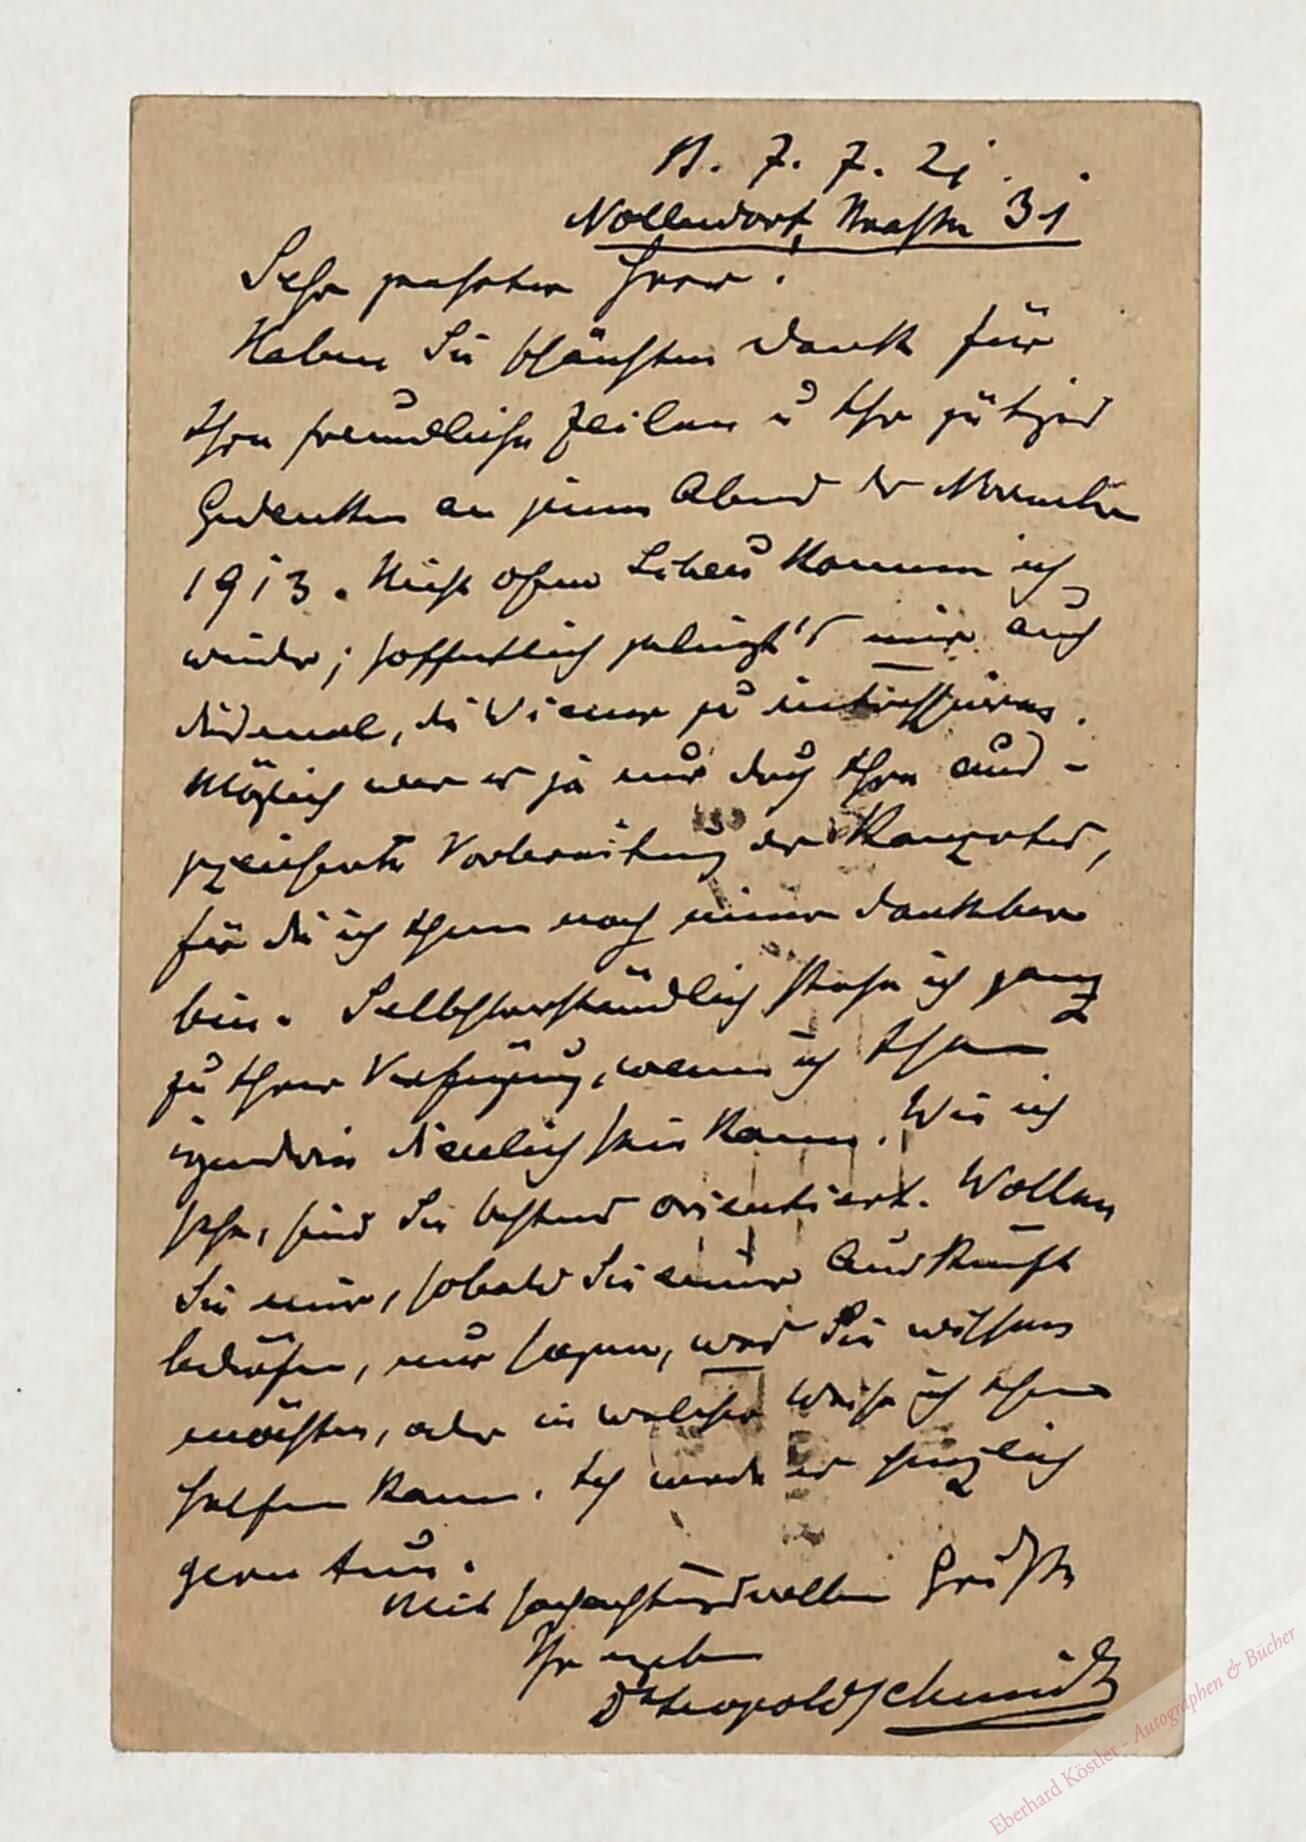 B. 7. 7. 21.
Nollendorfstrasse 31
Sehr geehrter Herr!
Haben Sie schönsten Dank für
Ihre freundlichen Zeilen u Ihr gütiges
Gedenken an jenen Abend des November
1913. Nicht ohne kommen ich
wieder; hoffentlich gelingt's mir auch
diesmal, die Wiener zu interessieren.
Möglich war es ja nur durch Ihre aus-
gezeichnete Vorbereitung des Konzertes,
für die ich Ihnen noch immer dankbar
bin. Selbstverständlich stehe ich ganz
zu Ihrer Verfügung, wenn ich Ihnen
irgendwie dienlich sein kann. Wie ich
sehe, sind Sie bestens orientiert. Wollen
Sie mir, sobald Sie einer Auskunft
bedürfen, nur sagen, was Sie wissen
möchten, oder in welcher Weise ich Ihnen
helfen kann. Ich werde es herzlich
gern tun.
Mit hochachtungsvollen Grüßen
Ihr ergeben
Dr Leopold Schmidt
Eberhard Köstler - Autographen & Bücher